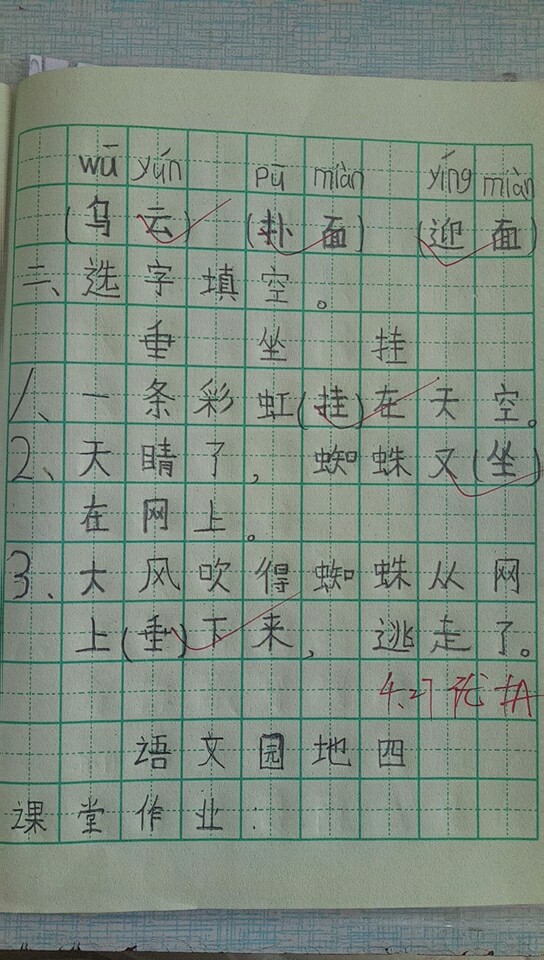 wū yún pū miàn yíng miàn
(乌云) (扑面) (迎面)
二、选字填空。
垂 坐 挂
1、一条彩虹(挂)在天空。
2、天睛了，蜘蛛又(坐)
在网上。
3、大风吹得蜘蛛从网
上(垂)下来，逃走了。
4.27 优
语文园地四
课堂作业: